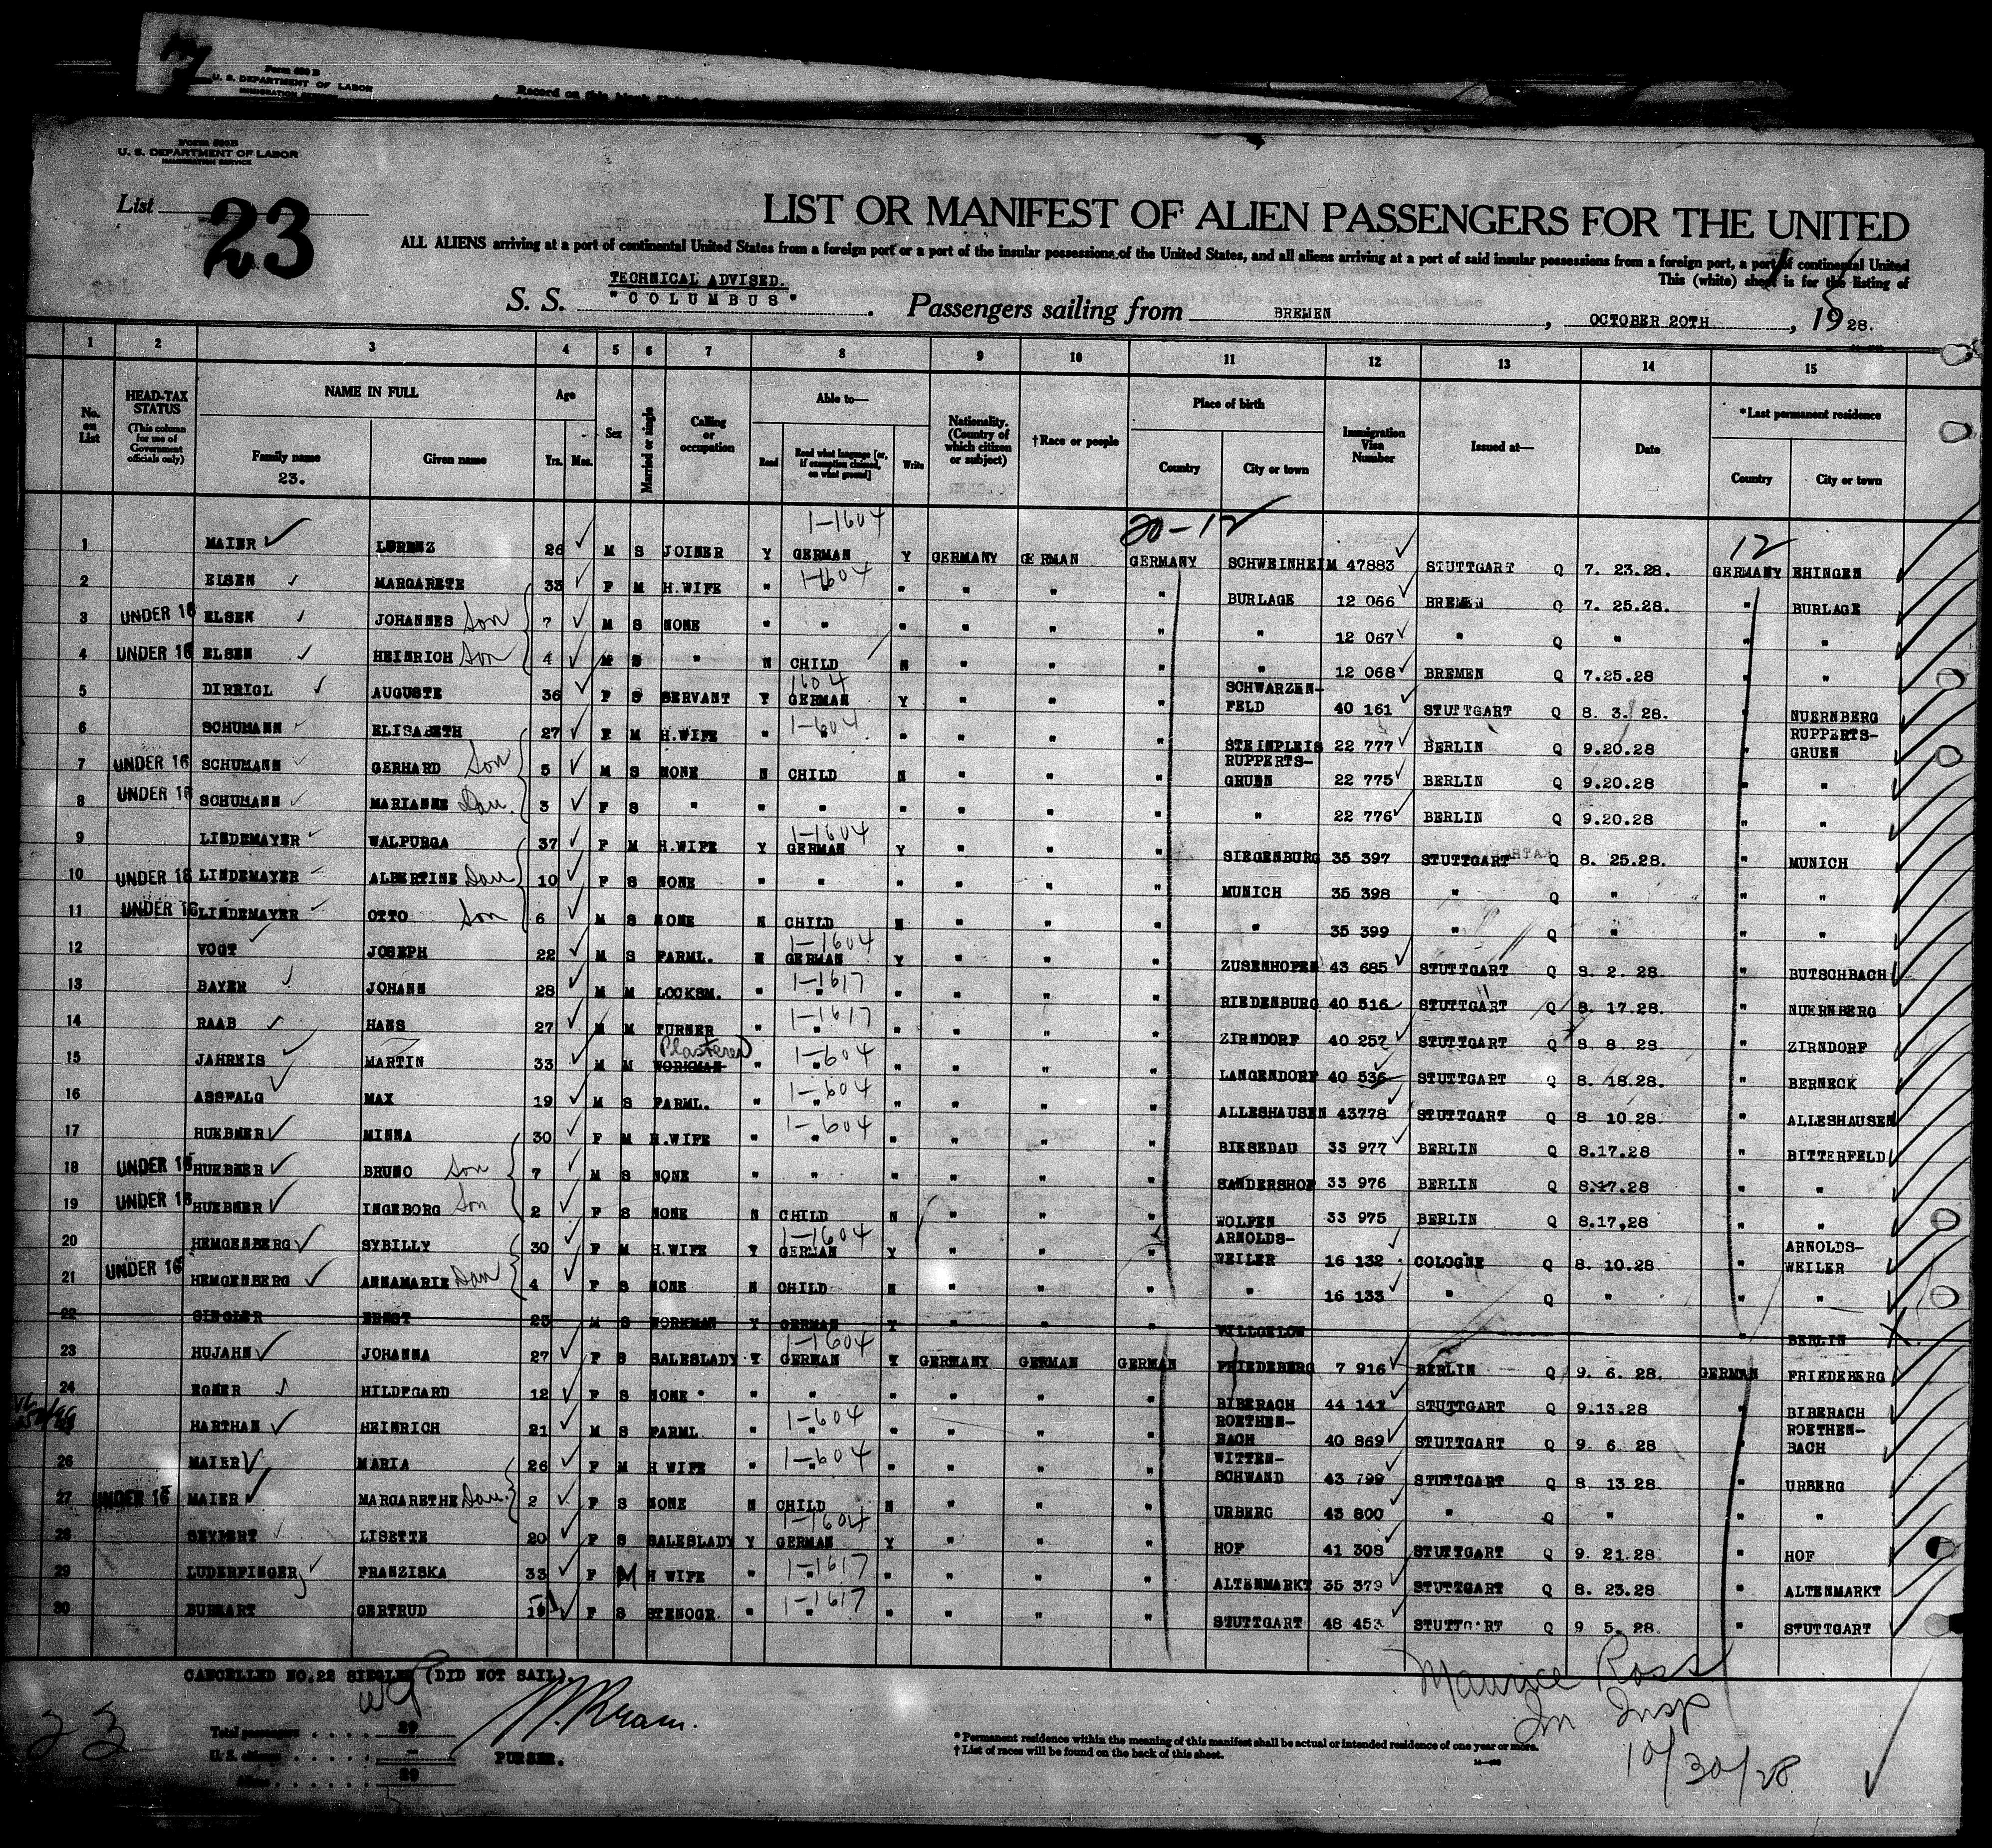 7
Form 500 B
U. S. DEPARTMENT OF LABOR
IMMIGRATION SERVICE
Record on this
Form 500B
U. S. DEPARTMENT OF LABOR
IMMIGRATION SERVICE
List 23
LIST OR MANIFEST OF ALIEN PASSENGERS FOR THE UNITED
ALL ALIENS arriving at a port of continental United States from a foreign port or a port of the insular possessions of the United States, and all aliens arriving at a port of said insular possessions from a foreign port, a port of continental United
This (white) sheet is for the listing of
TECHNICAL ADVISED.
S. S. "COLUMBUS". Passengers sailing from BREMEN, OCTOBER 20TH, 1928.
1 2 3 4 5 6 7 8 9 10 11 12 13 14 15
No. on List
HEAD-TAX STATUS (This column for use of Government officials only)
NAME IN FULL
Family name
23.
Given name
Age
Yrs. Mos.
Sex
Married or single
Calling or occupation
Able to—
Read
Read what language [or, if exemption claimed, on what ground]
Write
Nationality. (Country of which citizen or subject)
†Race or people
Place of birth
Country
City or town
Immigration Visa Number
Issued at—
Date
*Last permanent residence
Country
City or town
1-1604 20-12 12
1 MAIER LORENZ 26 M S JOINER Y GERMAN Y GERMANY GERMAN GERMANY SCHWEINHEIM 47883 STUTTGART Q 7. 23.28. GERMANY EHINGEN
2 ELSEN MARGARETE 33 F M H.WIFE " 1-1604 " " " " BURLAGE 12 066 BREMEN Q 7. 25.28. " BURLAGE
3 UNDER 16 ELSEN JOHANNES Son 7 M S NONE " " " " " " " 12 067 " Q " " "
4 UNDER 16 ELSEN HEINRICH Son 4 M S " N CHILD N " " " " 12 068 BREMEN Q 7.25.28 " "
5 DIRRIGL AUGUSTE 36 F S SERVANT Y 1604 GERMAN Y " " " SCHWARZEN-FELD 40 161 STUTTGART Q 8. 3. 28. " NUERNBERG
6 SCHUMANN ELISABETH 27 F M H.WIFE " 1-604 " " " " STEINPLEIS 22 777 BERLIN Q 9.20.28 " RUPPERTS-GRUEN
7 UNDER 16 SCHUMANN GERHARD Son 5 M S NONE N CHILD N " " " RUPPERTS-GRUEN 22 775 BERLIN Q 9.20.28 " "
8 UNDER 16 SCHUMANN MARIANNE Dau. 3 F S " " " " " " " " 22 776 BERLIN Q 9.20.28 " "
9 LINDEMAYER WALPURGA 37 F M H.WIFE Y 1-1604 GERMAN Y " " " SIEGENBURG 35 397 STUTTGART Q 8. 25.28. " MUNICH
10 UNDER 16 LINDEMAYER ALBERTINE Dau 10 F S NONE " " " " " " MUNICH 35 398 " Q " " "
11 UNDER 16 LINDEMAYER OTTO Son 6 M S NONE N CHILD N " " " " 35 399 " Q " " "
12 VOGT JOSEPH 22 M S FARML. N 1-1604 GERMAN Y " " " ZUSENHOFEN 43 685 STUTTGART Q 8. 2. 28. " BUTSCHBACH
13 BAYER JOHANN 28 M M LOCKSM. " 1-1617 " " " " " RIEDENBURG 40 516 STUTTGART Q 8. 17.28. " NUERNBERG
14 RAAB HANS 27 M M TURNER " 1-1617 " " " " " ZIRNDORF 40 257 STUTTGART Q 8. 8. 28. " ZIRNDORF
15 JAHREIS MARTIN 33 M M WORKMAN Plasterer " 1-604 " " " " " LANGENDORF 40 536 STUTTGART Q 8. 18.28. " BERNECK
16 ASSFALG MAX 19 M S FARML. " 1-604 " " " " " ALLESHAUSEN 43778 STUTTGART Q 8 10.28. " ALLESHAUSEN
17 HUEBNER MINNA 30 F M H.WIFE " 1-604 " " " " " BIESEDAU 33 977 BERLIN Q 8.17.28 " BITTERFELD
18 UNDER 16 HUEBNER BRUNO Son 7 M S NONE " " " " " " SANDERSHOF 33 976 BERLIN Q 8.17.28 " "
19 UNDER 16 HUEBNER INGEBORG Son 2 F S NONE N CHILD N " " " WOLFEN 33 975 BERLIN Q 8.17,28 " "
20 HEMGENBERG SYBILLY 30 F M H.WIFE Y 1-1604 GERMAN Y " " " ARNOLDS-WEILER 16 132 COLOGNE Q 8. 10.28. " ARNOLDS-WEILER
21 UNDER 16 HEMGENBERG ANNAMARIE Dau 4 F S NONE N CHILD N " " " " 16 133 " Q " " "
22 SINGLER ERNST 25 M S WORKMAN Y GERMAN Y " " " WILLGELOW " BERLIN X
23 HUJAHN JOHANNA 27 F S SALESLADY Y 1-1604 GERMAN Y GERMANY GERMAN GERMAN FRIEDEBERG 7 916 BERLIN Q 9. 6. 28. GERMAN FRIEDEBERG
24 EGNER HILDEGARD 12 F S NONE " " " " " " BIBERACH 44 141 STUTTGART Q 9.13.28 " BIBERACH
HARTHAN HEINRICH 21 M S FARML " 1-604 " " " " " ROETHEN-BACH 40 869 STUTTGART Q 9. 6. 28 " ROETHEN-BACH
26 MAIER MARIA 26 F M H WIFE " 1-604 " " " " " WITTEN-SCHWAND 43 799 STUTTGART Q 8. 13.28. " URBERG
27 UNDER 16 MAIER MARGARETHE Dau. 2 F S NONE N CHILD N " " " URBERG 43 800 " Q " " "
28 SEYFERT LISETTE 20 F S SALESLADY Y 1-1604 GERMAN Y " " " HOF 41 308 STUTTGART Q 9. 21.28. " HOF
29 LUDERFINGER FRANZISKA 33 F M H WIFE " 1-1617 " " " " " ALTENMARKT 35 379 STUTTGART Q 8. 23.28 " ALTENMARKT
30 BURKART GERTRUD 19 F S STENOGR. " 1-1617 " " " " " STUTTGART 48 453 STUTTGART Q 9 5. 28. " STUTTGART
CANCELLED NO.22 SIEGLER (DID NOT SAIL).
Maurice Ross
Im Insp
10/30/28
23
Total passengers . . . . 29
U. S. citizens . . . . –
Aliens . . . . . . 29
PURSER.
* Permanent residence within the meaning of this manifest shall be actual or intended residence of one year or more.
† List of races will be found on the back of this sheet.